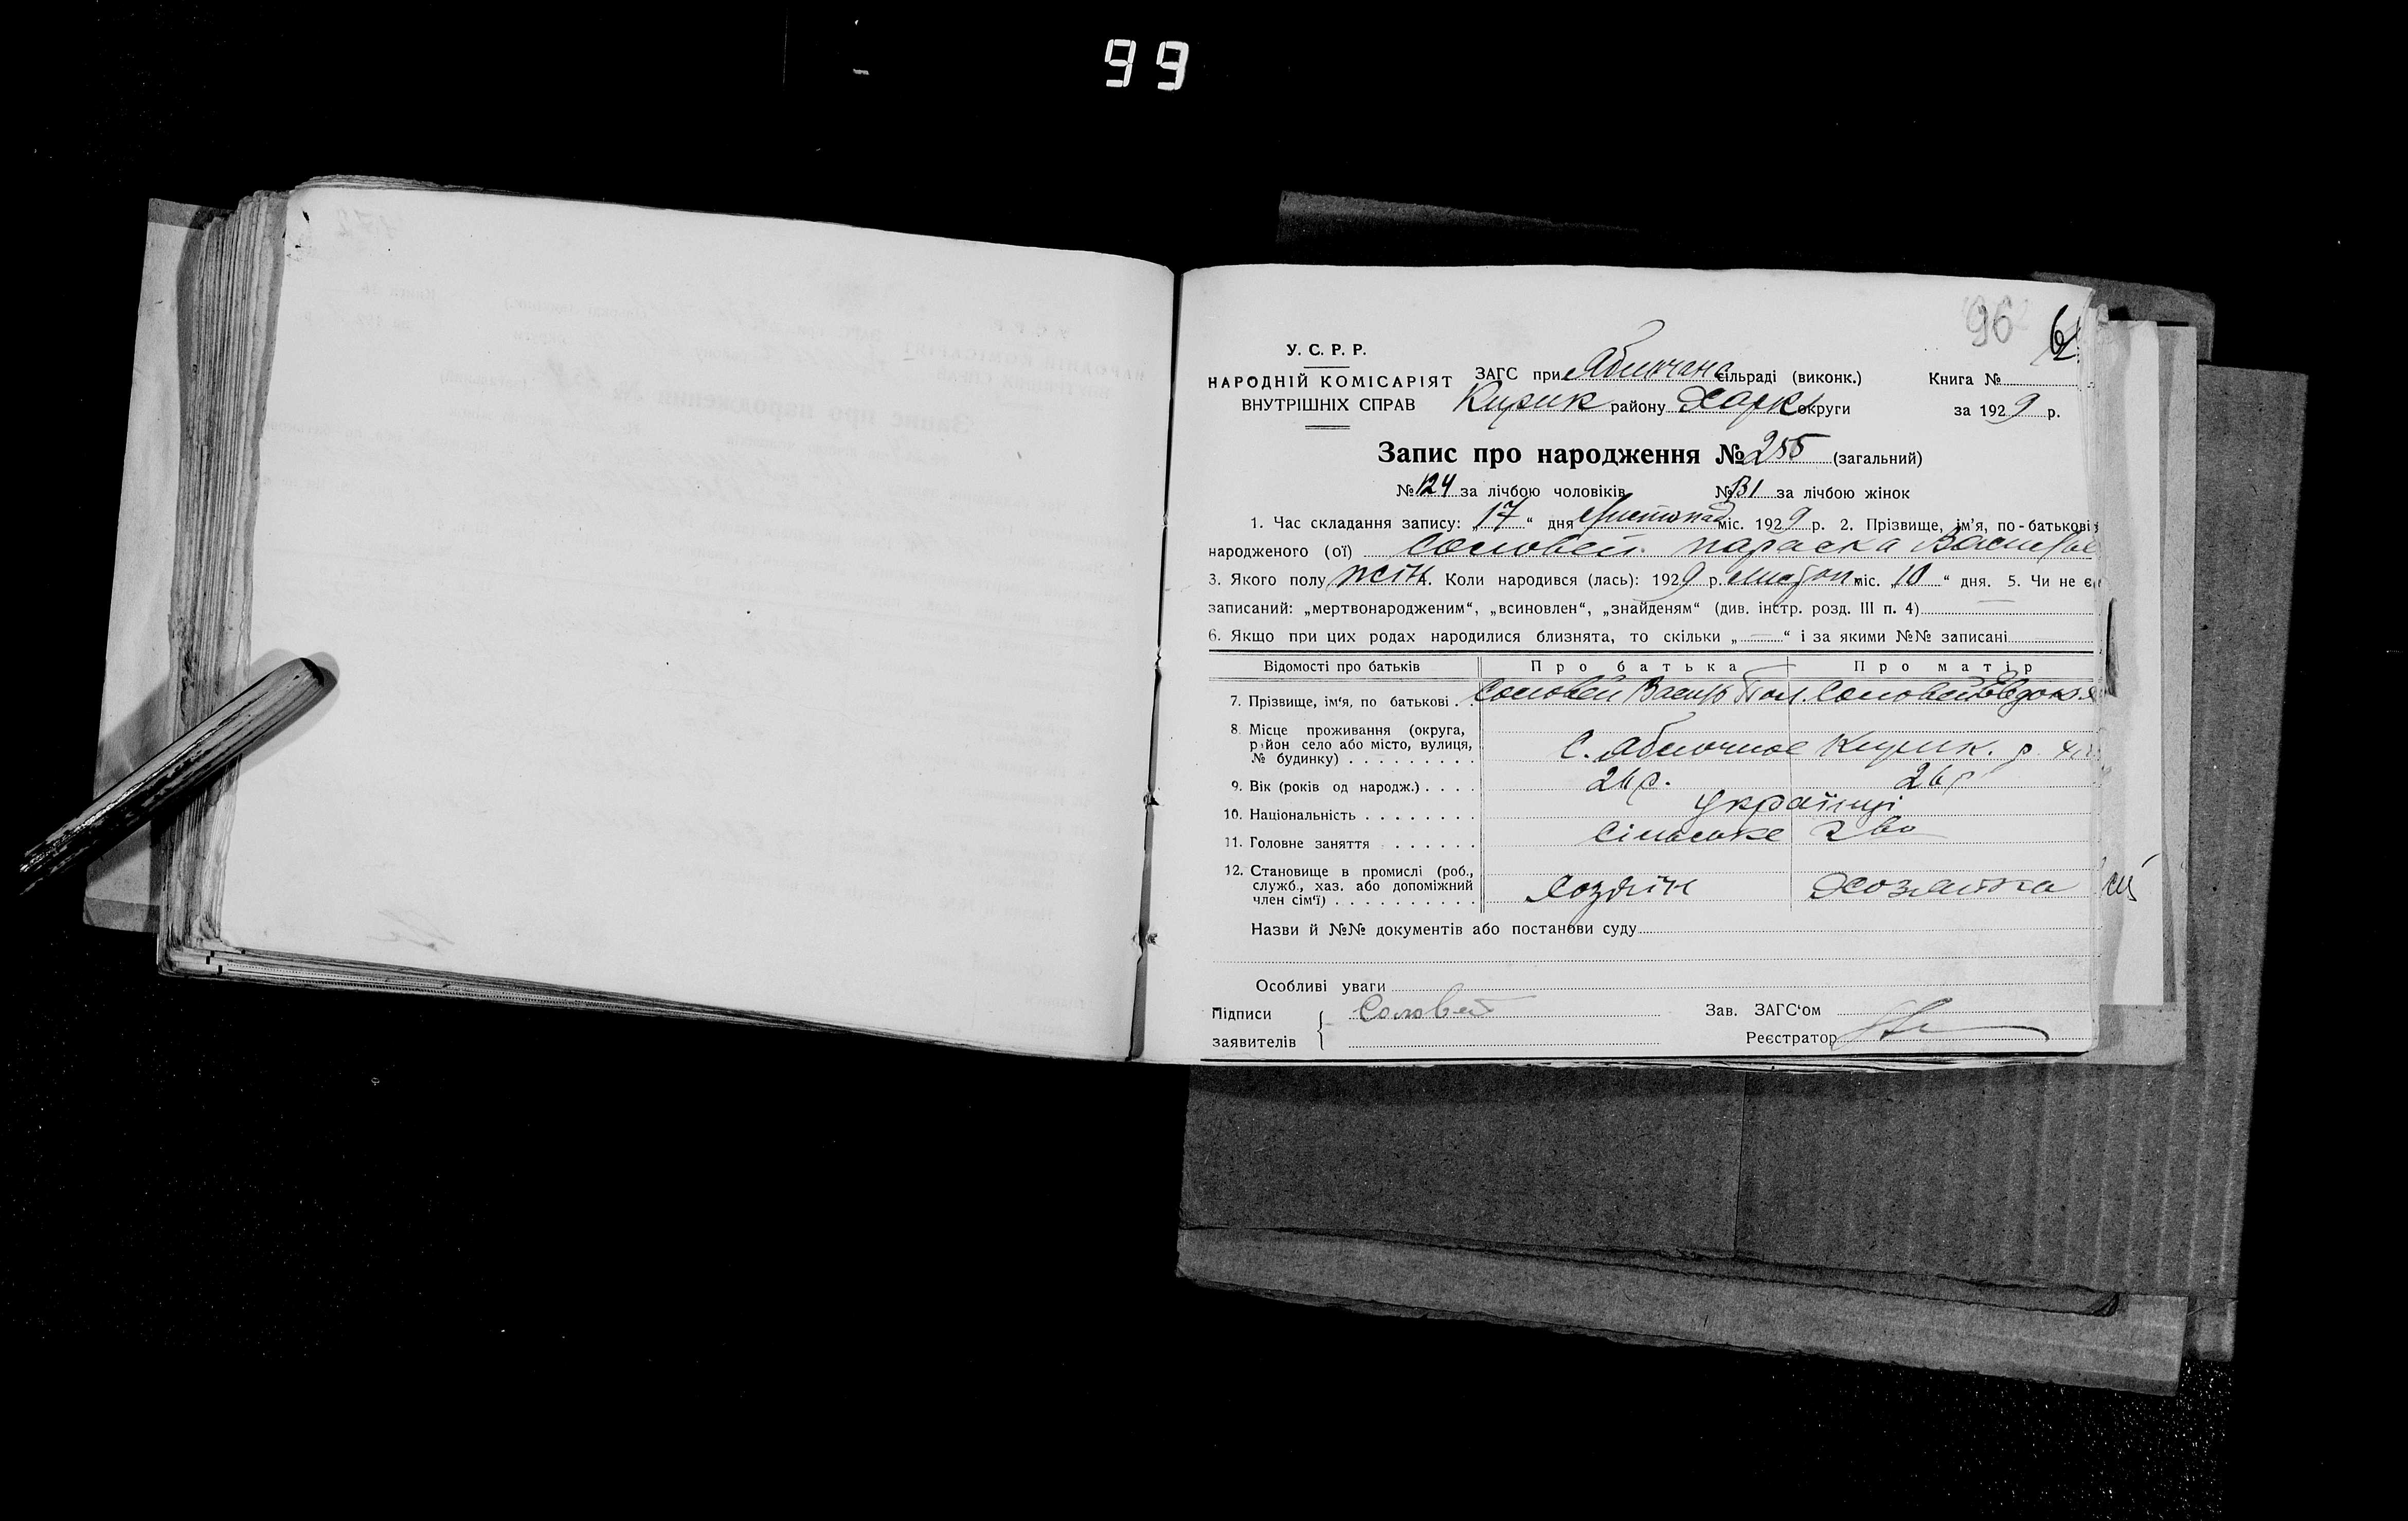 99
96
У. С. Р. Р.
НАРОДНІЙ КОМІСАРІЯТ
ВНУТРІШНІХ СПРАВ
ЗАГС при сільраді (виконк.)
району Харк округи
Книга №
за 1929 р.
Запис про народження № 255 (загальний)
№ 124 за лічбою чоловіків № 131 за лічбою жінок
1. Час складання запису: „17“ дня Листопад міс. 1929 р. 2. Прізвище, ім'я, по-батькові
народженого (ої) Соловей Параска
3. Якого полу жін. Коли народився (лась): 1929 р. міс. „10“ дня. 5. Чи не є
записаний: „мертвонародженим“, „всиновлен“, „знайденям“ (див. інстр. розд. III п. 4)
6. Якщо при цих родах народилися близнята, то скільки „—“ і за якими №№ записані
Відомості про батьків Про батька Про матір
7. Прізвище, ім'я, по батькові . . Соловей Соловей
8. Місце проживання (округа,
район село або місто, вулиця,
№ будинку) . . . . . . . . . с.
9. Вік (років од народж.) . . . . 26 р. 26 р
10. Національність . . . . . . . . українці
11. Головне заняття . . . . . . Сільське г-во
12. Становище в промислі (роб.,
служб., хаз. або допоміжний
член сім'ї) . . . . . . . . . . Хозяїн Хозяйка
Назви й №№ документів або постанови суду
Особливі уваги
Підписи
заявителів
Соловей
Зав. ЗАГС'ом
Реєстратор